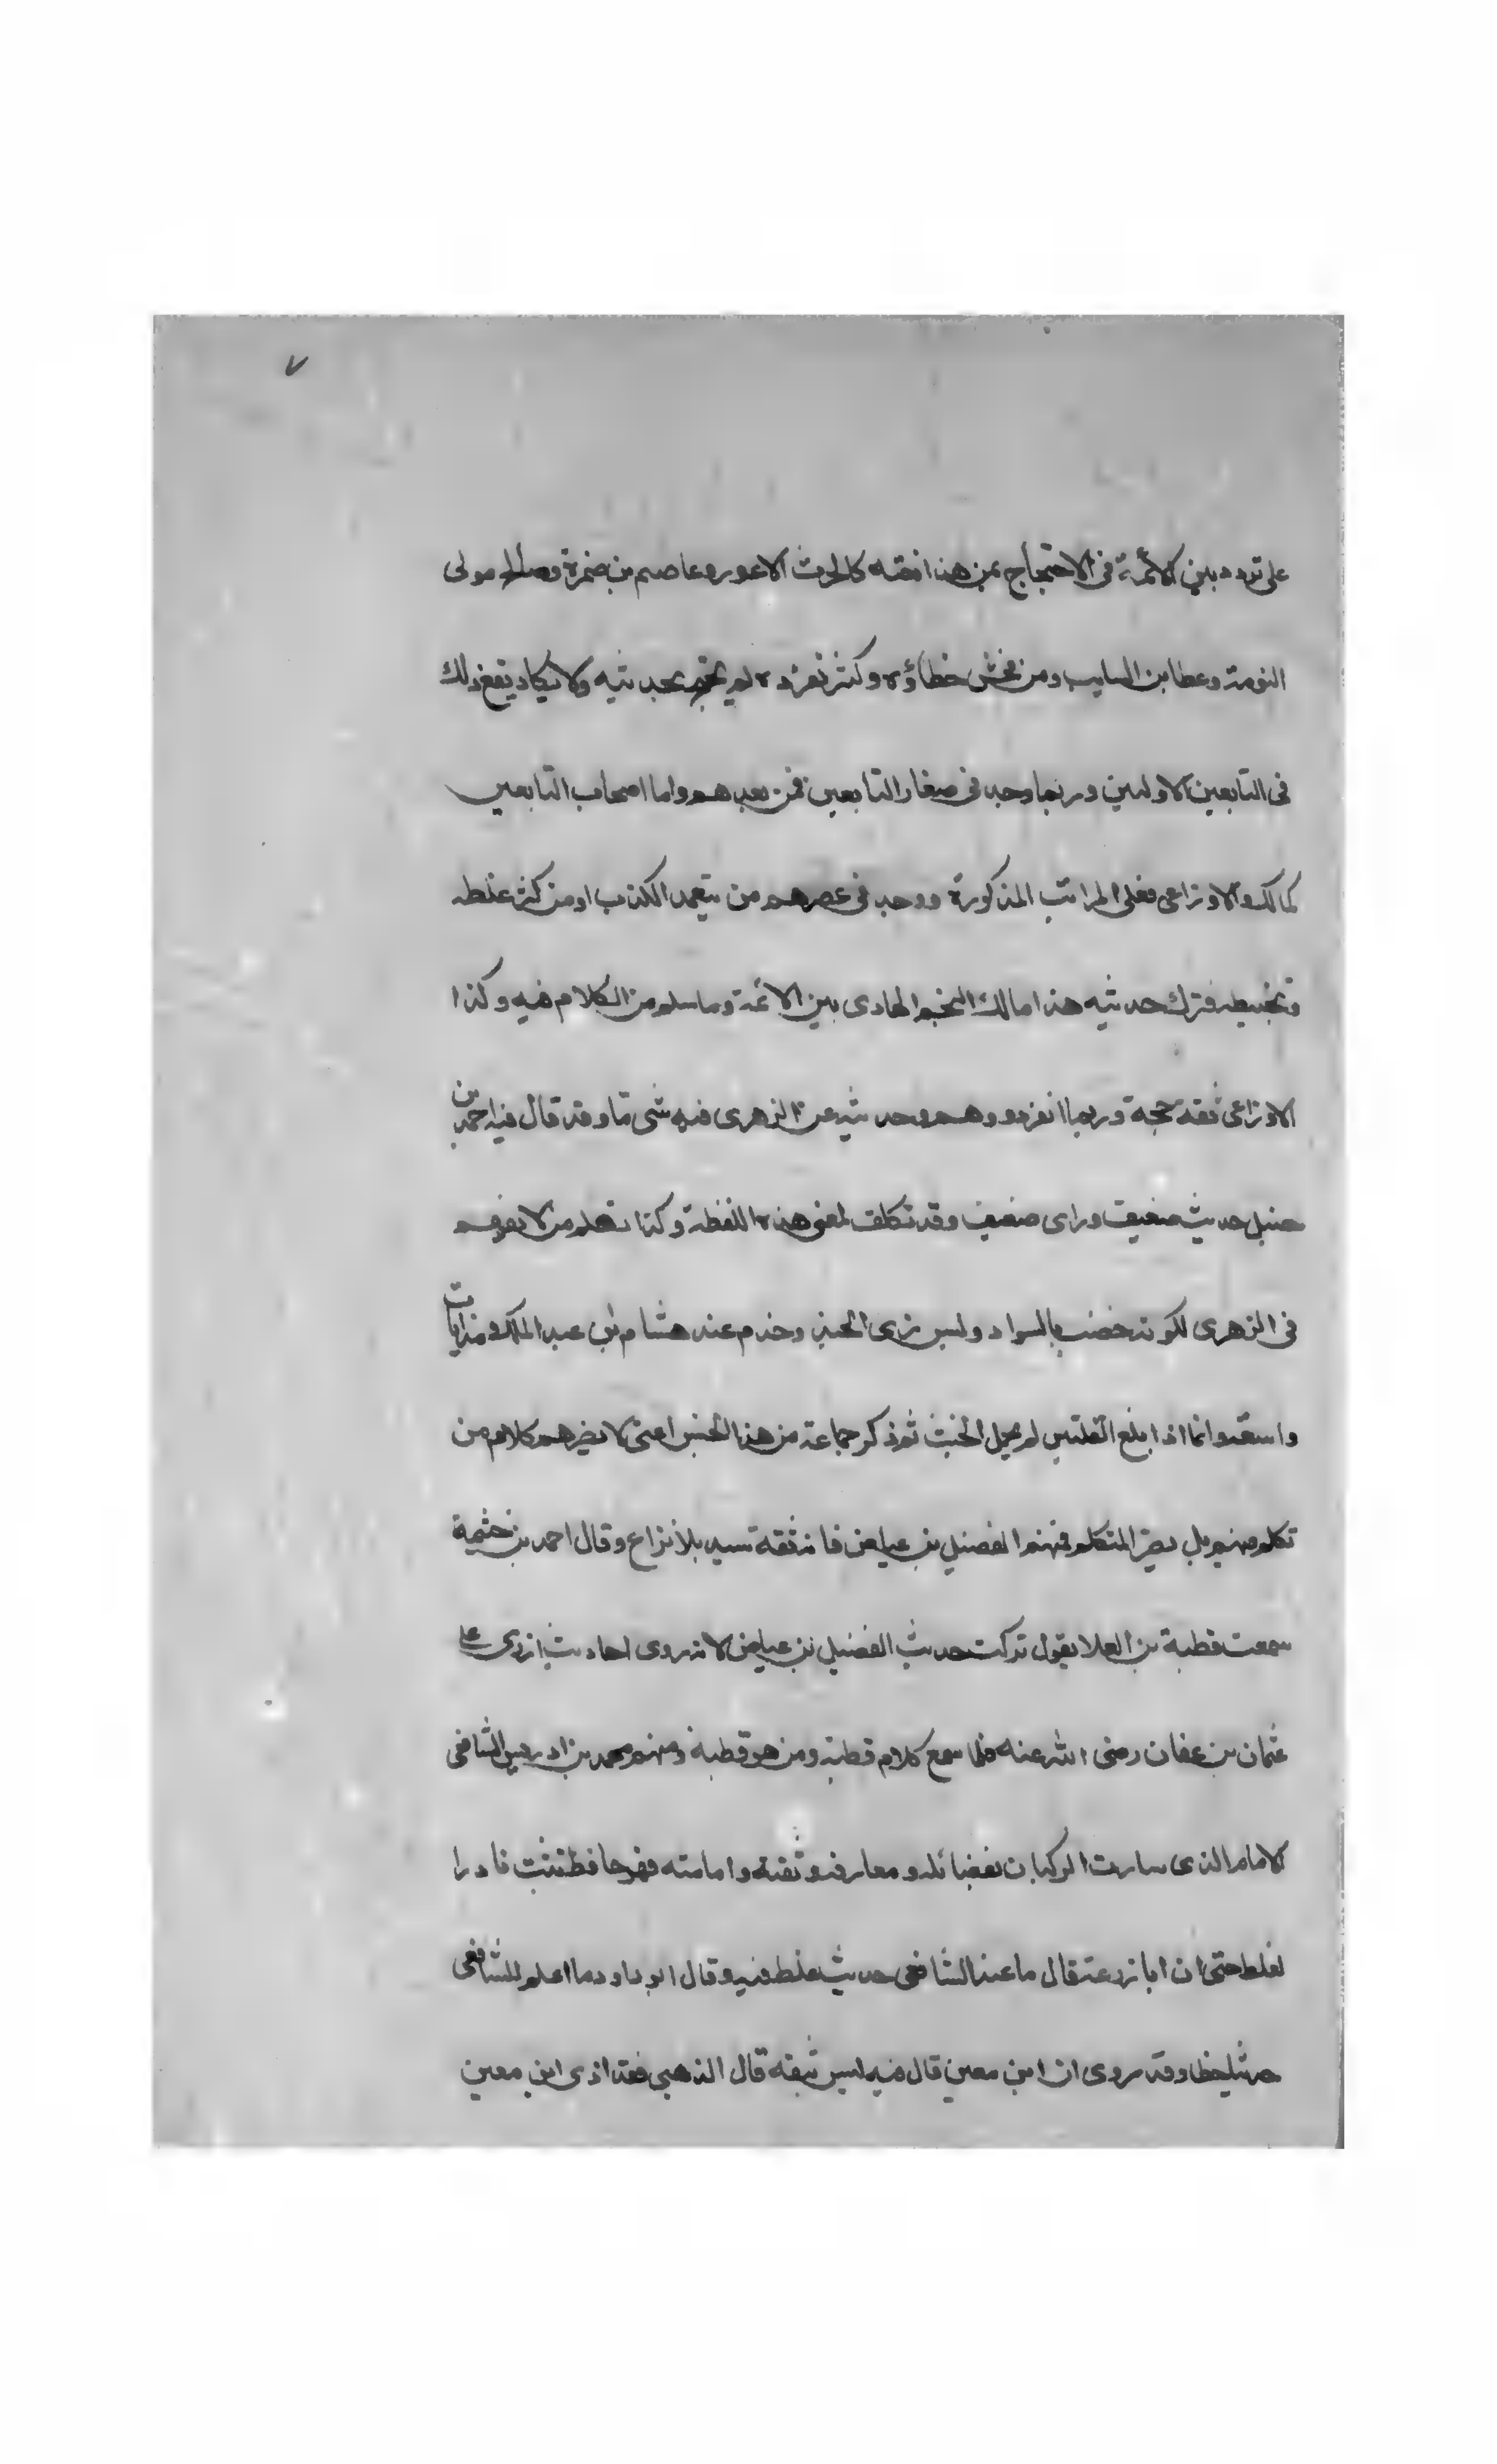 ٧
على تردد بين الأئمة في الاحتجاج بمن هذا نعته كالحرث الاعور وعاصم بن ضمرة وصالح مولى
التومة وعطا بن السايب ومن فحش خطاؤه وكثر تفرده لم يحتج بحديثه ولا يكاد يقع ذلك
في التابعين الاولين وربما وجد في صغار التابعين فمن بعدهم واما اصحاب التابعين
كمالك والاوزاعي فعلى المراتب المذكورة ووجد في عصرهم من يتعمد الكذب او من كثر غلطه
وتخبيطه فترك حديثه هذا مالك النجم الهادي بين الائمة وما سلم من الكلام فيه وكذا
الاوزاعي ثقة حجة وربما انفرد ووهم وحديثه عن الزهري فيه شي ما وقد قال فيه احمد بن
حنبل حديث ضعيف وراى ضعيف وقد تكلف لمعنى هذه اللفظة وكذا تكلم من لا يفهم
في الزهري لكونه خضب بالسواد ولبس زي الجند وخدم عند هشام بن عبد الملك وهذا باب
واسع وانما اذا بلغ القلتين لم يحمل الخبث ثم ذكر جماعة من هذا الجنس اعني لا يضرهم كلام من
تكلم فيهم بل يضر المتكلم فمنهم الفضيل بن عياض فانه ثقة سيد بلا نزاع وقال احمد بن خثيمة
سمعت قطبة بن العلا يقول تركت حديث الفضيل بن عياض لانه روى احاديث ازرى على
عثمان بن عفان رضى الله عنه فلما سمع كلام قطبة ومن هو قطبة ومنهم محمد بن ادريس الشافعي
الامام الذي سارت الركبان بفضائله ومعارفه وثقته وامامته فهو حافظ ثبت نادرا
لغلط حتى ان ابا زرعة قال ما عند الشافعي حديث غلط فيه وقال ابو داود ما اعلم للشافعي
حديثا خطا وقد روى ان ابن معين قال فيه ليس بثقة قال الذهبي فقد اذى ابن معين